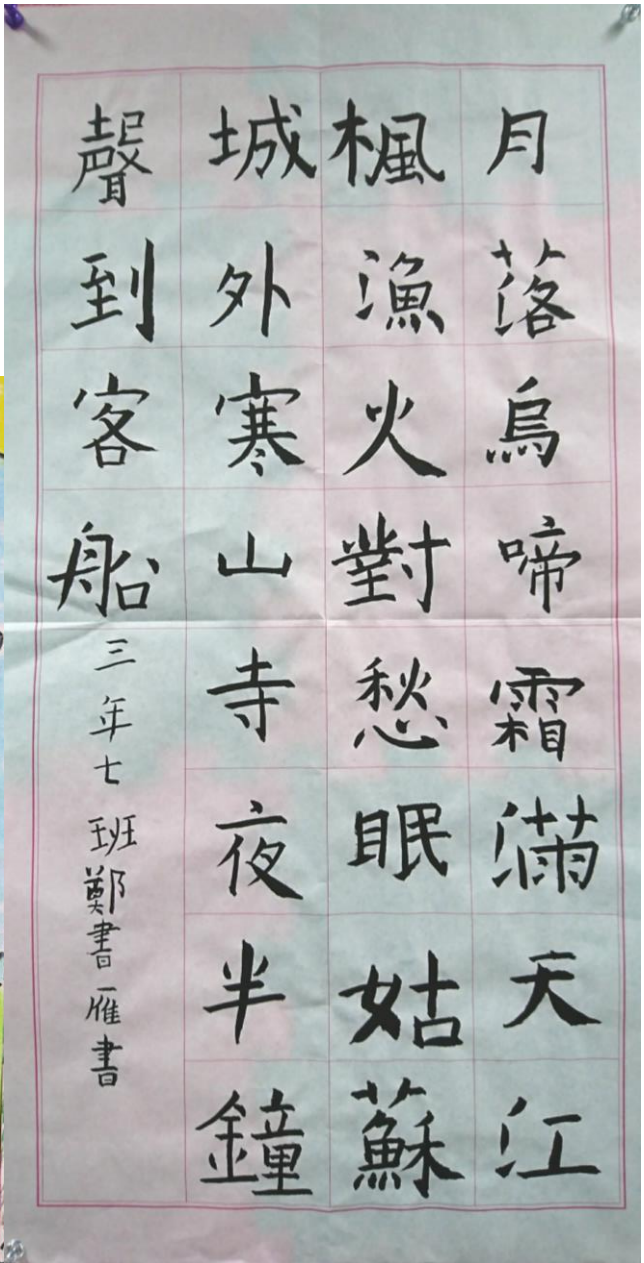 月落烏啼霜滿天江
楓漁火對愁眠姑蘇
城外寒山寺夜半鐘
聲到客船三年七班鄭書雁書